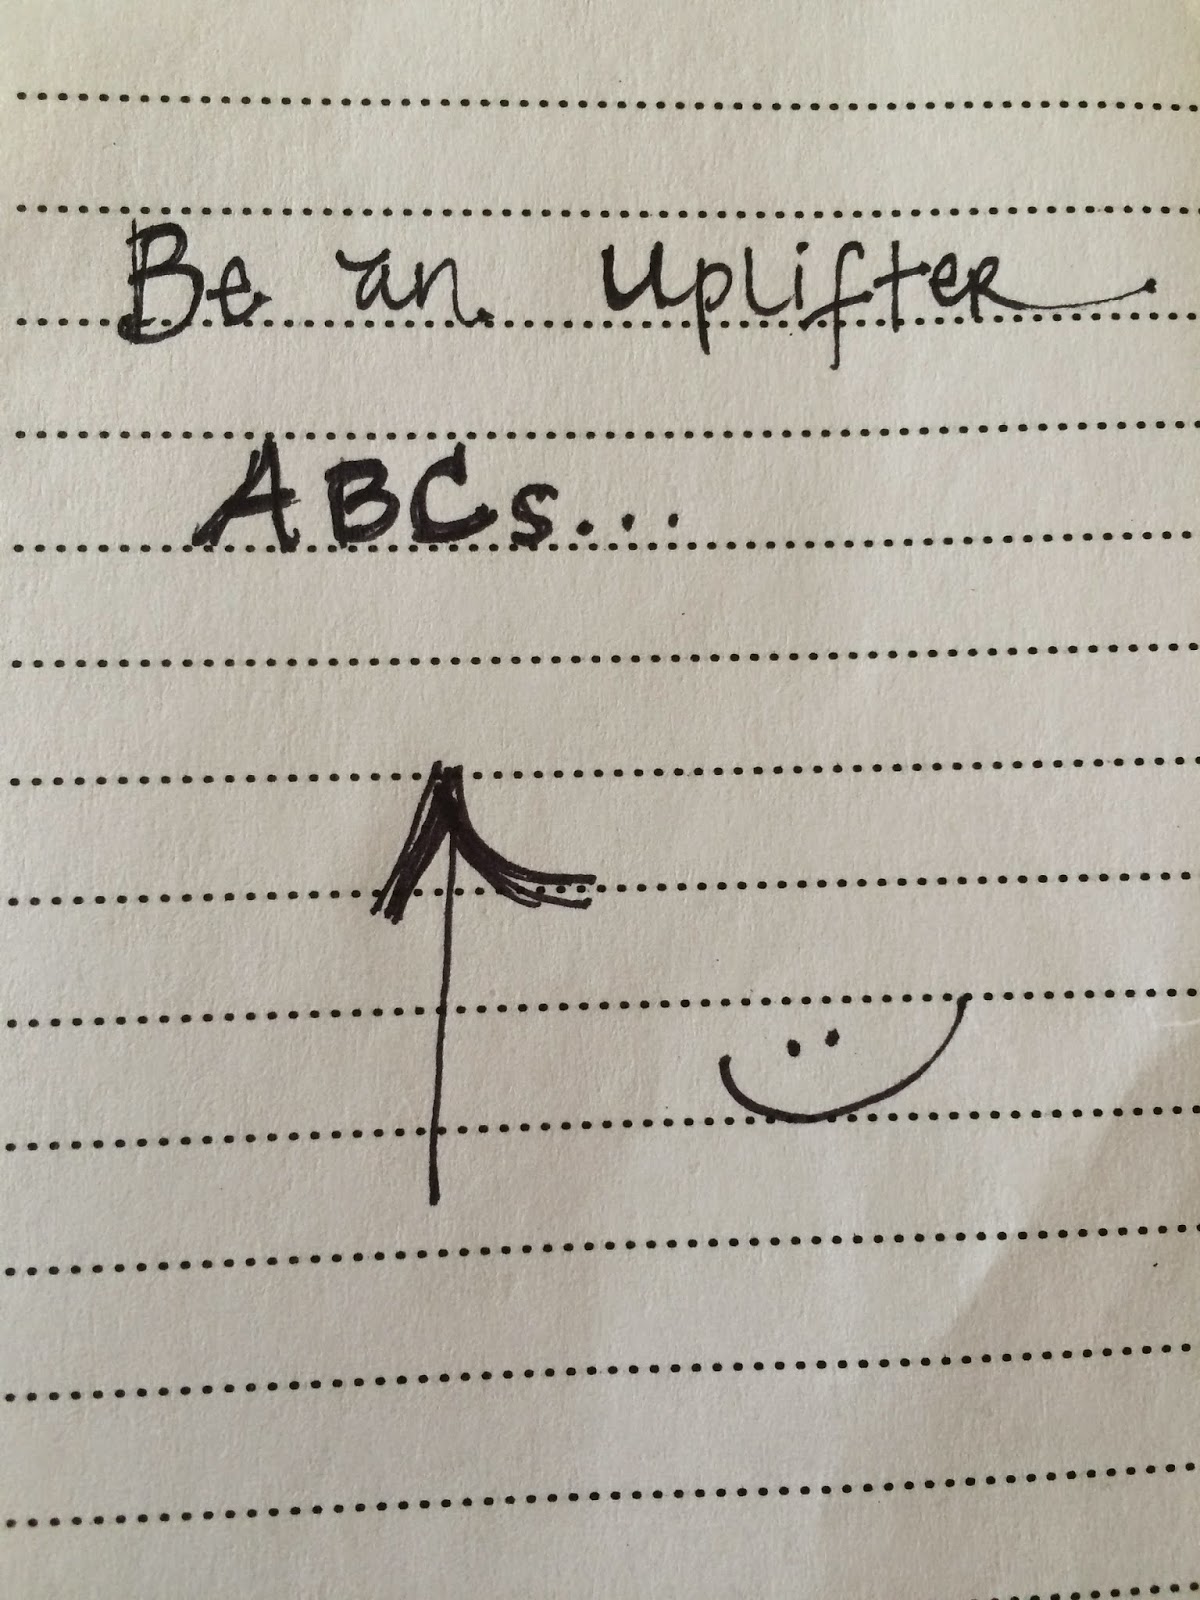 Be an uplifter
ABCs...